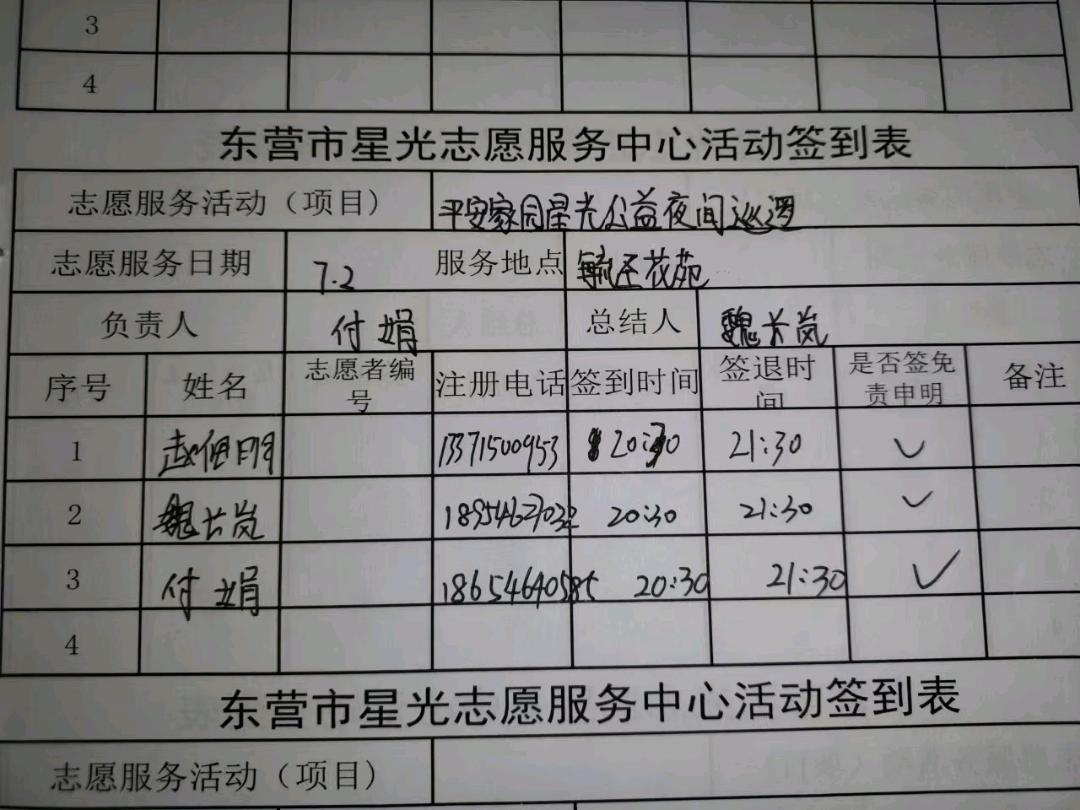 3
4
东营市星光志愿服务中心活动签到表
志愿服务活动（项目） 平安家园星光公益夜间巡逻
志愿服务日期 7.2 服务地点 花苑
负责人 付娟 总结人 魏长岚
序号 姓名 志愿者编号 注册电话 签到时间 签退时间 是否签免责申明 备注
1 13371500953 20:30 21:30 ✓
2 魏长岚 18954627032 20:30 21:30 ✓
3 付娟 18654640585 20:30 21:30 ✓
4
东营市星光志愿服务中心活动签到表
志愿服务活动（项目）